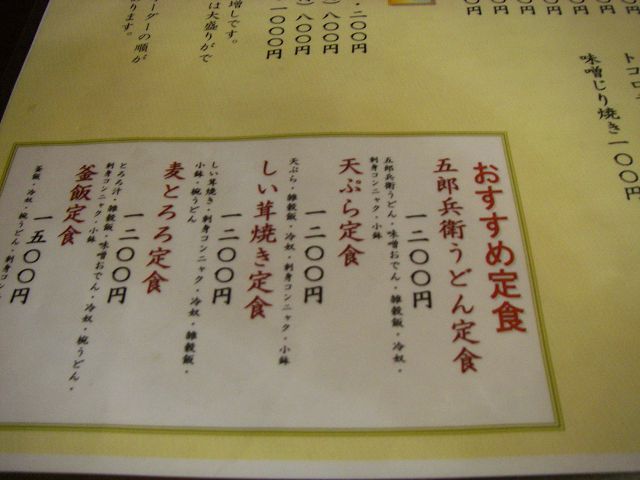 トコロ
味噌じり焼き 一〇〇円
円
円
円
円
円
円
・二〇〇円
）八〇〇円
）八〇〇円
一〇〇〇円
増しです。
は大盛りがで
ーダーの順が
ります。
おすすめ定食
五郎兵衛うどん定食
一二〇〇円
五郎兵衛うどん・味噌おでん・雑穀飯・冷奴・
刺身コンニャク・小鉢
天ぷら定食
一二〇〇円
天ぷら・雑穀飯・冷奴・刺身コンニャク・小鉢
しい茸焼き定食
一二〇〇円
しい茸焼き・刺身コンニャク・冷奴・雑穀飯・
小鉢・椀うどん
麦とろろ定食
一二〇〇円
とろろ汁・雑穀飯・味噌おでん・冷奴・椀うどん・
刺身コンニャク・小鉢
釜飯定食
一五〇〇円
釜飯・冷奴・椀うどん・刺身コン